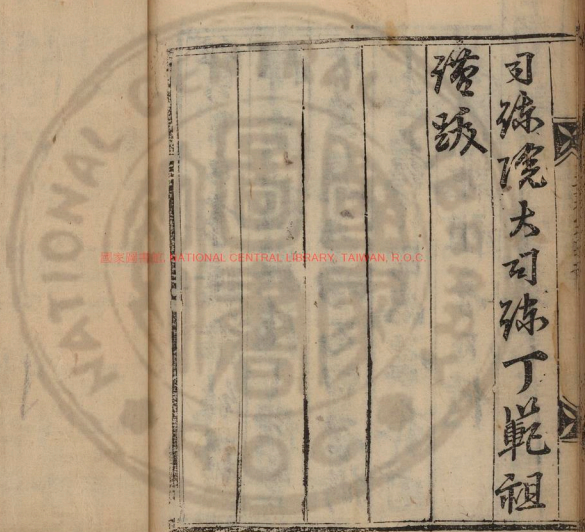 司諫院大司諫丁範祖
謹跋
國家圖書館, NATIONAL CENTRAL LIBRARY, TAIWAN, R.O.C.